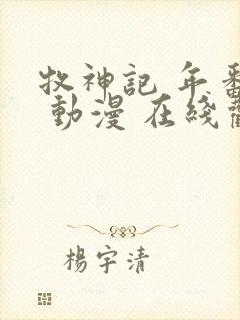 牧神記 年番
動漫 在綫
楊宇清